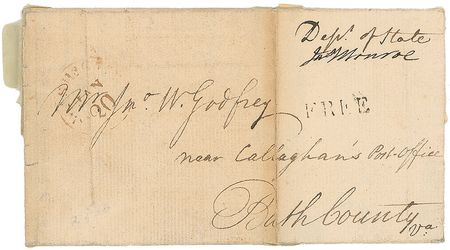 Dept. of State
Jas Monroe
FREE
Mr. Jno. W. Godfrey
near Callaghan's Post-Office
Bath County
Va